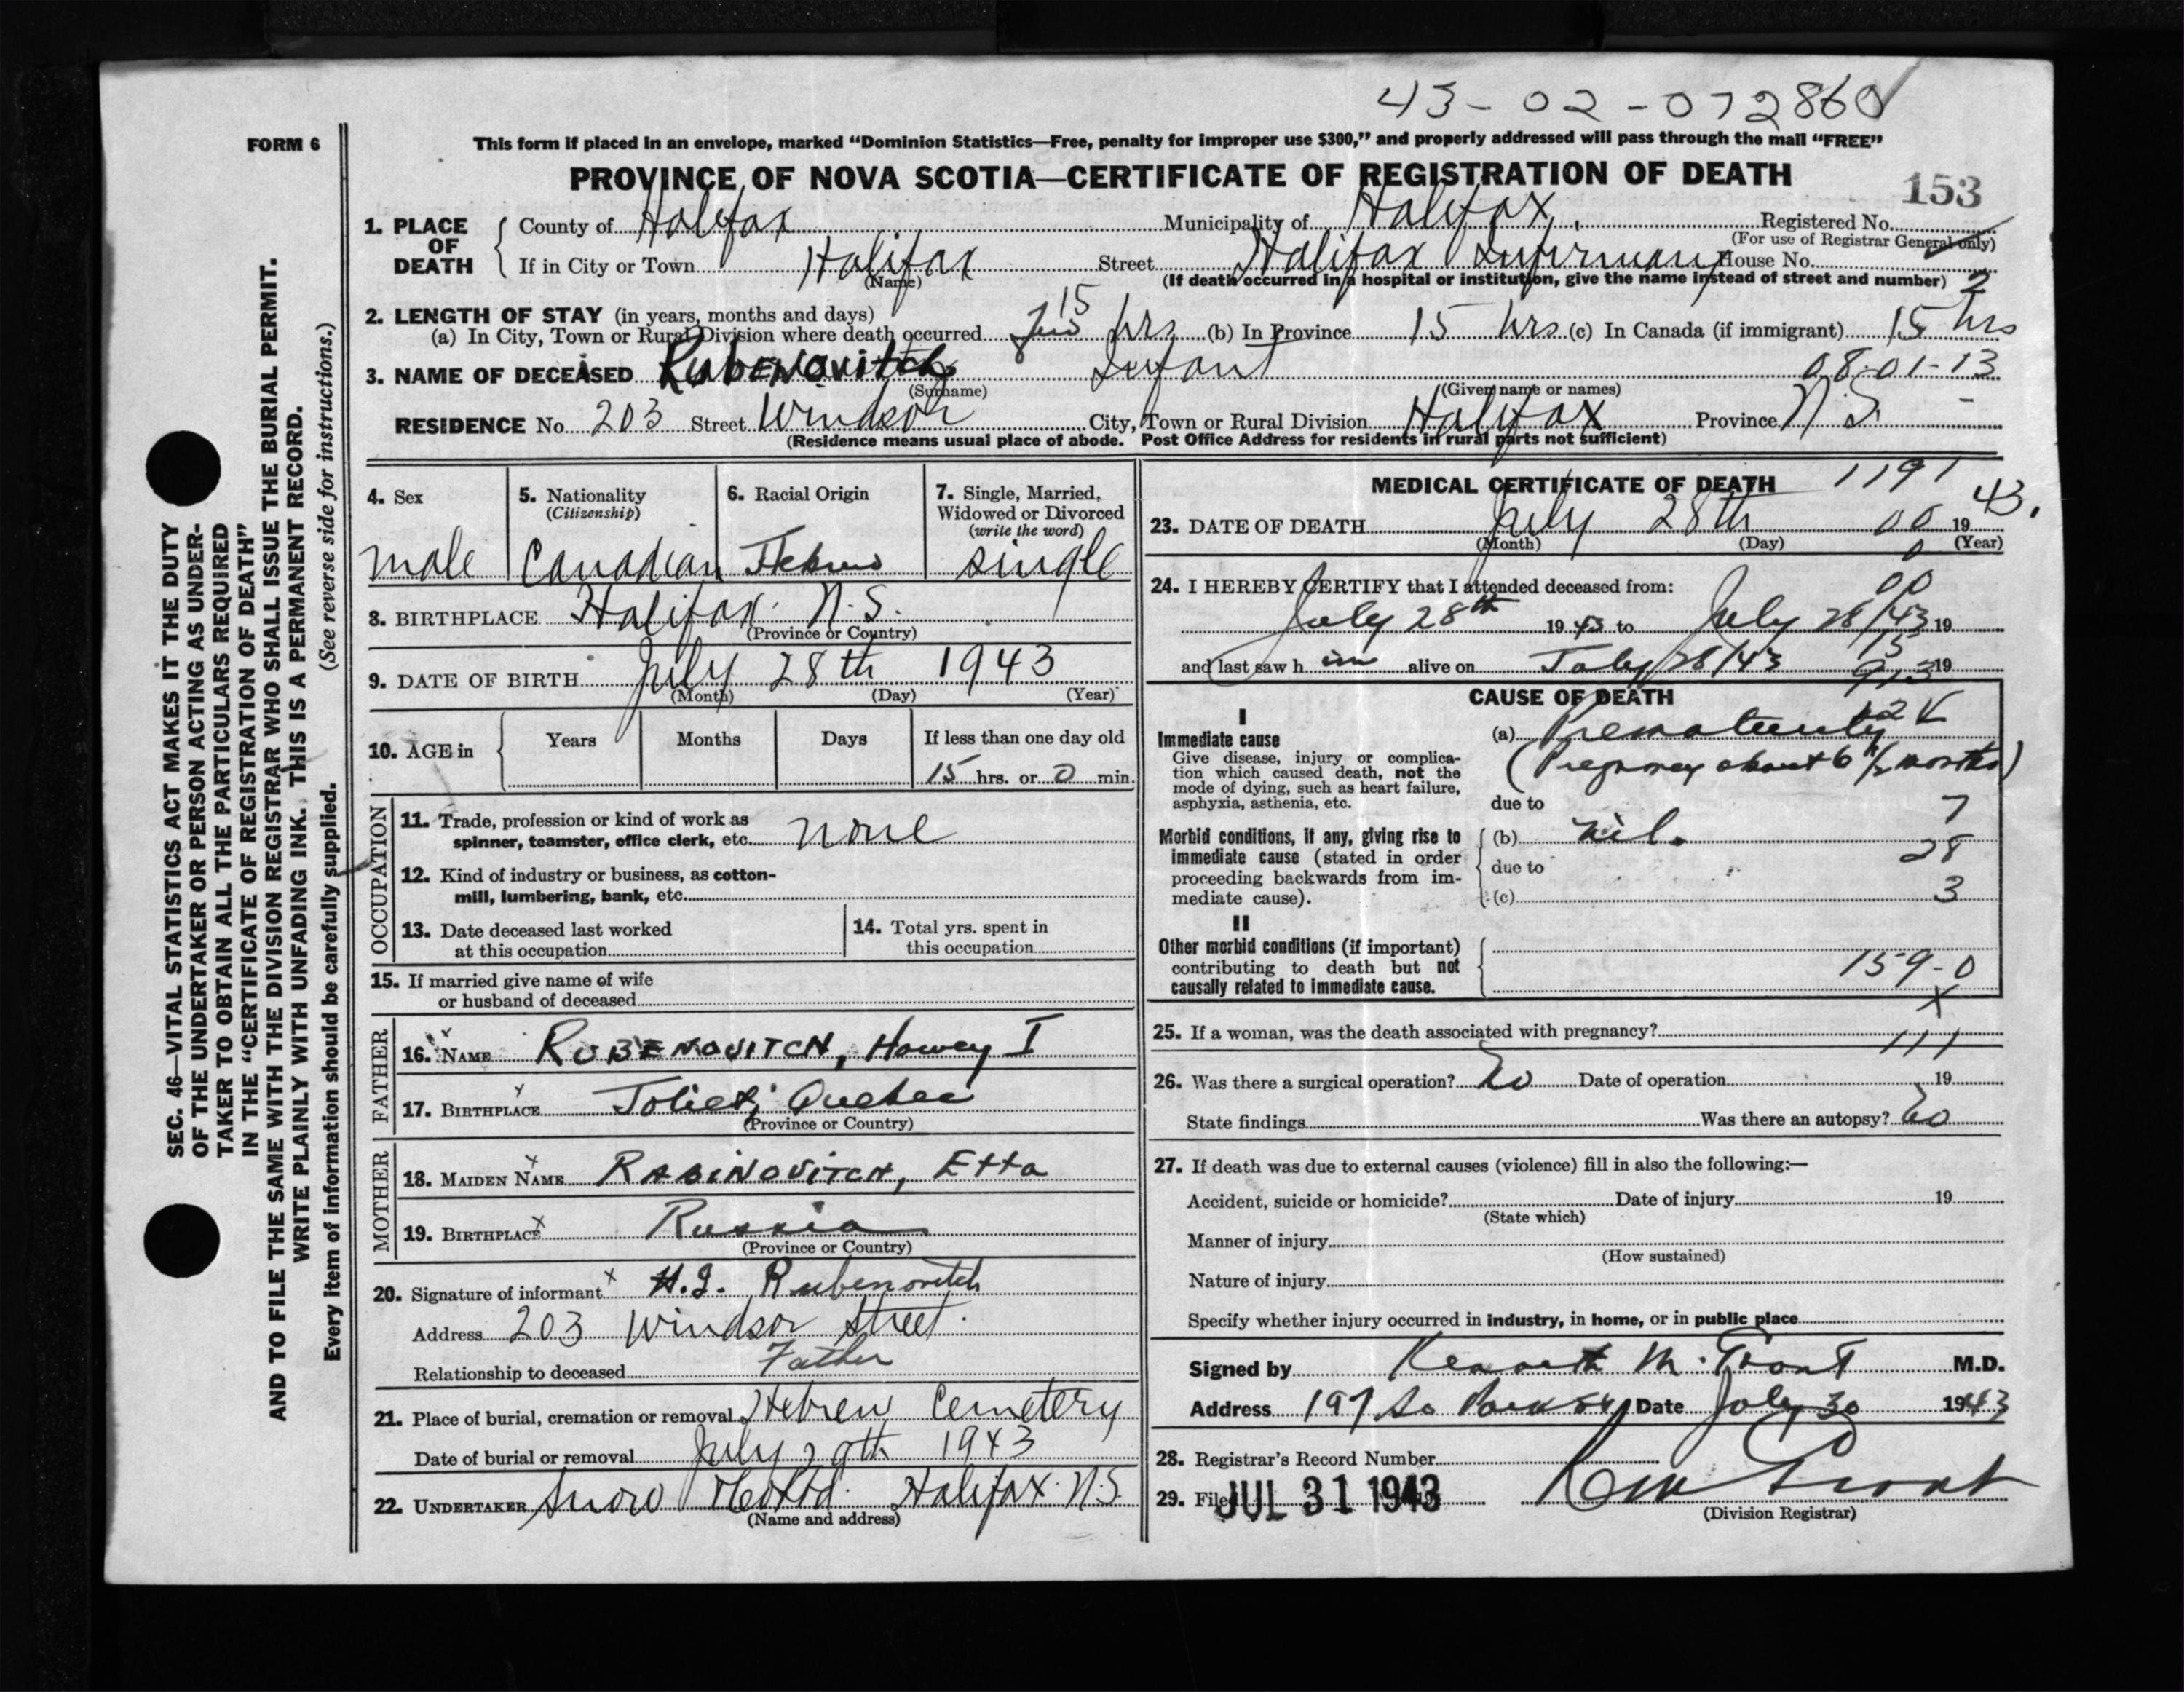 43-02-072860
FORM 6
This form if placed in an envelope, marked "Dominion Statistics—Free, penalty for improper use $300," and properly addressed will pass through the mail "FREE"
PROVINCE OF NOVA SCOTIA—CERTIFICATE OF REGISTRATION OF DEATH
153
1. PLACE OF DEATH
County of Halifax Municipality of Halifax Registered No.
(For use of Registrar General only)
If in City or Town Halifax Street Halifax Infirmary House No.
(Name) (If death occurred in a hospital or institution, give the name instead of street and number) 2
2. LENGTH OF STAY (in years, months and days)
(a) In City, Town or Rural Division where death occurred 15 hrs (b) In Province 15 hrs (c) In Canada (if immigrant) 15 hrs
3. NAME OF DECEASED Rubenovitch Infant 08-01-13
(Surname) (Given name or names)
RESIDENCE No. 203 Street Windsor City, Town or Rural Division Halifax Province N.S.
(Residence means usual place of abode. Post Office Address for residents in rural parts not sufficient)
4. Sex
male
5. Nationality
(Citizenship)
Canadian
6. Racial Origin
Hebrew
7. Single, Married, Widowed or Divorced
(write the word)
single
8. BIRTHPLACE Halifax N.S.
(Province or Country)
9. DATE OF BIRTH July 28th 1943
(Month) (Day) (Year)
10. AGE in Years Months Days If less than one day old
15 hrs. or 0 min.
OCCUPATION
11. Trade, profession or kind of work as
spinner, teamster, office clerk, etc. none
12. Kind of industry or business, as cotton-
mill, lumbering, bank, etc.
13. Date deceased last worked
at this occupation
14. Total yrs. spent in
this occupation
15. If married give name of wife
or husband of deceased
FATHER
16. NAME RUBENOVITCH, Harvey I
17. BIRTHPLACE Joliet, Quebec
(Province or Country)
MOTHER
18. MAIDEN NAME RABINOVITCH, Etta
19. BIRTHPLACE Russia
(Province or Country)
20. Signature of informant H.I. Rubenovitch
Address 203 Windsor Street.
Relationship to deceased Father
21. Place of burial, cremation or removal Hebrew Cemetery
Date of burial or removal July 29th 1943
22. UNDERTAKER Snow & Co Ltd. Halifax N.S.
(Name and address)
MEDICAL CERTIFICATE OF DEATH 1191
23. DATE OF DEATH July 28th 00 1943.
(Month) (Day) (Year)
0
24. I HEREBY CERTIFY that I attended deceased from: 00
July 28th 1943 to July 28/43 19
and last saw him alive on July 28/43 19
CAUSE OF DEATH
I
Immediate cause
Give disease, injury or complica-
tion which caused death, not the
mode of dying, such as heart failure,
asphyxia, asthenia, etc.
(a) Prematurity
(Pregnancy about 6 1/2 months)
due to 7
Morbid conditions, if any, giving rise to
immediate cause (stated in order
proceeding backwards from im-
mediate cause).
(b) Nil. 28
due to
(c) 3
II
Other morbid conditions (if important)
contributing to death but not
causally related to immediate cause.
159-0
X
25. If a woman, was the death associated with pregnancy?
111
26. Was there a surgical operation? No Date of operation 19
State findings Was there an autopsy? No
27. If death was due to external causes (violence) fill in also the following:—
Accident, suicide or homicide? Date of injury 19
(State which)
Manner of injury
(How sustained)
Nature of injury
Specify whether injury occurred in industry, in home, or in public place
Signed by Kenneth M. Grant M.D.
Address 197 So Park St Date July 30 1943
28. Registrar's Record Number
29. Filed JUL 31 1943 Grant
(Division Registrar)
SEC. 46—VITAL STATISTICS ACT MAKES IT THE DUTY
OF THE UNDERTAKER OR PERSON ACTING AS UNDER-
TAKER TO OBTAIN ALL THE PARTICULARS REQUIRED
IN THE "CERTIFICATE OF REGISTRATION OF DEATH"
AND TO FILE THE SAME WITH THE DIVISION REGISTRAR WHO SHALL ISSUE THE BURIAL PERMIT.
WRITE PLAINLY WITH UNFADING INK. THIS IS A PERMANENT RECORD.
Every item of information should be carefully supplied. (See reverse side for instructions.)